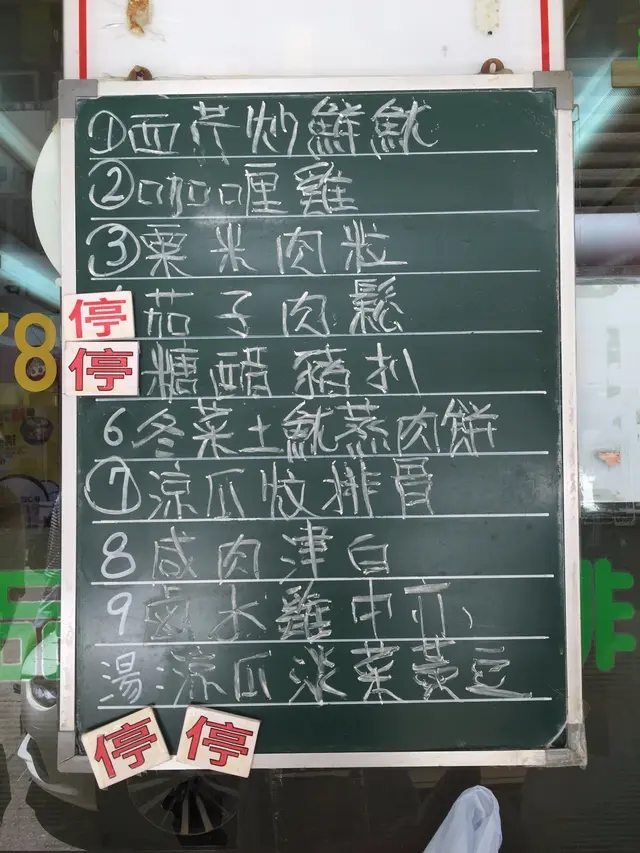 ①西芹炒鮮魷
②咖喱雞
③粟米肉粒
停 茄子肉鬆
停 糖醋豬扒
6冬菜土魷蒸肉餅
⑦涼瓜炆排骨
8咸肉津白
9鹵水雞中
湯:涼瓜淡菜黃豆
停 停
78
品